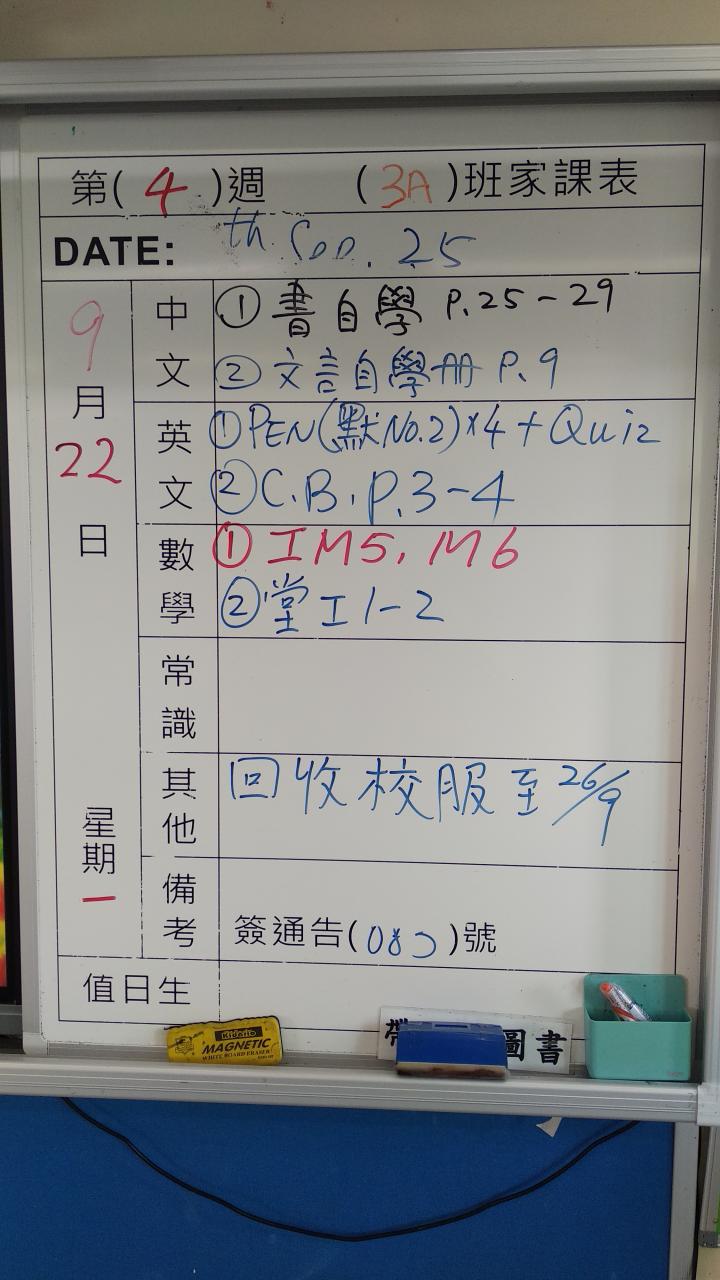 第(4)週 (3A)班家課表
DATE: th 25
9月22日 星期一
中文 ① 書自學 P.25-29
② 文言自學册 P.9
英文 ① PEN(默No.2)×4+Quiz
② C.B.P.3-4
數學 ① 工M5, M6
② 堂工1-2
常識
其他 回收校服至26/9
備考 簽通告( )號
值日生
Kidario
MAGNETIC
WHITE BOARD ERASER
帶 圖書